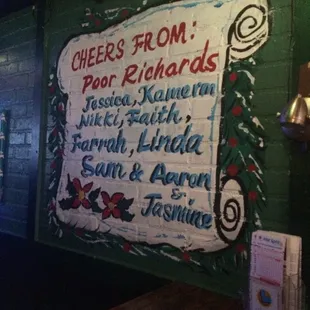 CHEERS FROM:
Poor Richards
Jessica, Kamerin
Nikki, Faith,
Farrah, Linda
Sam & Aaron
&
Jasmine